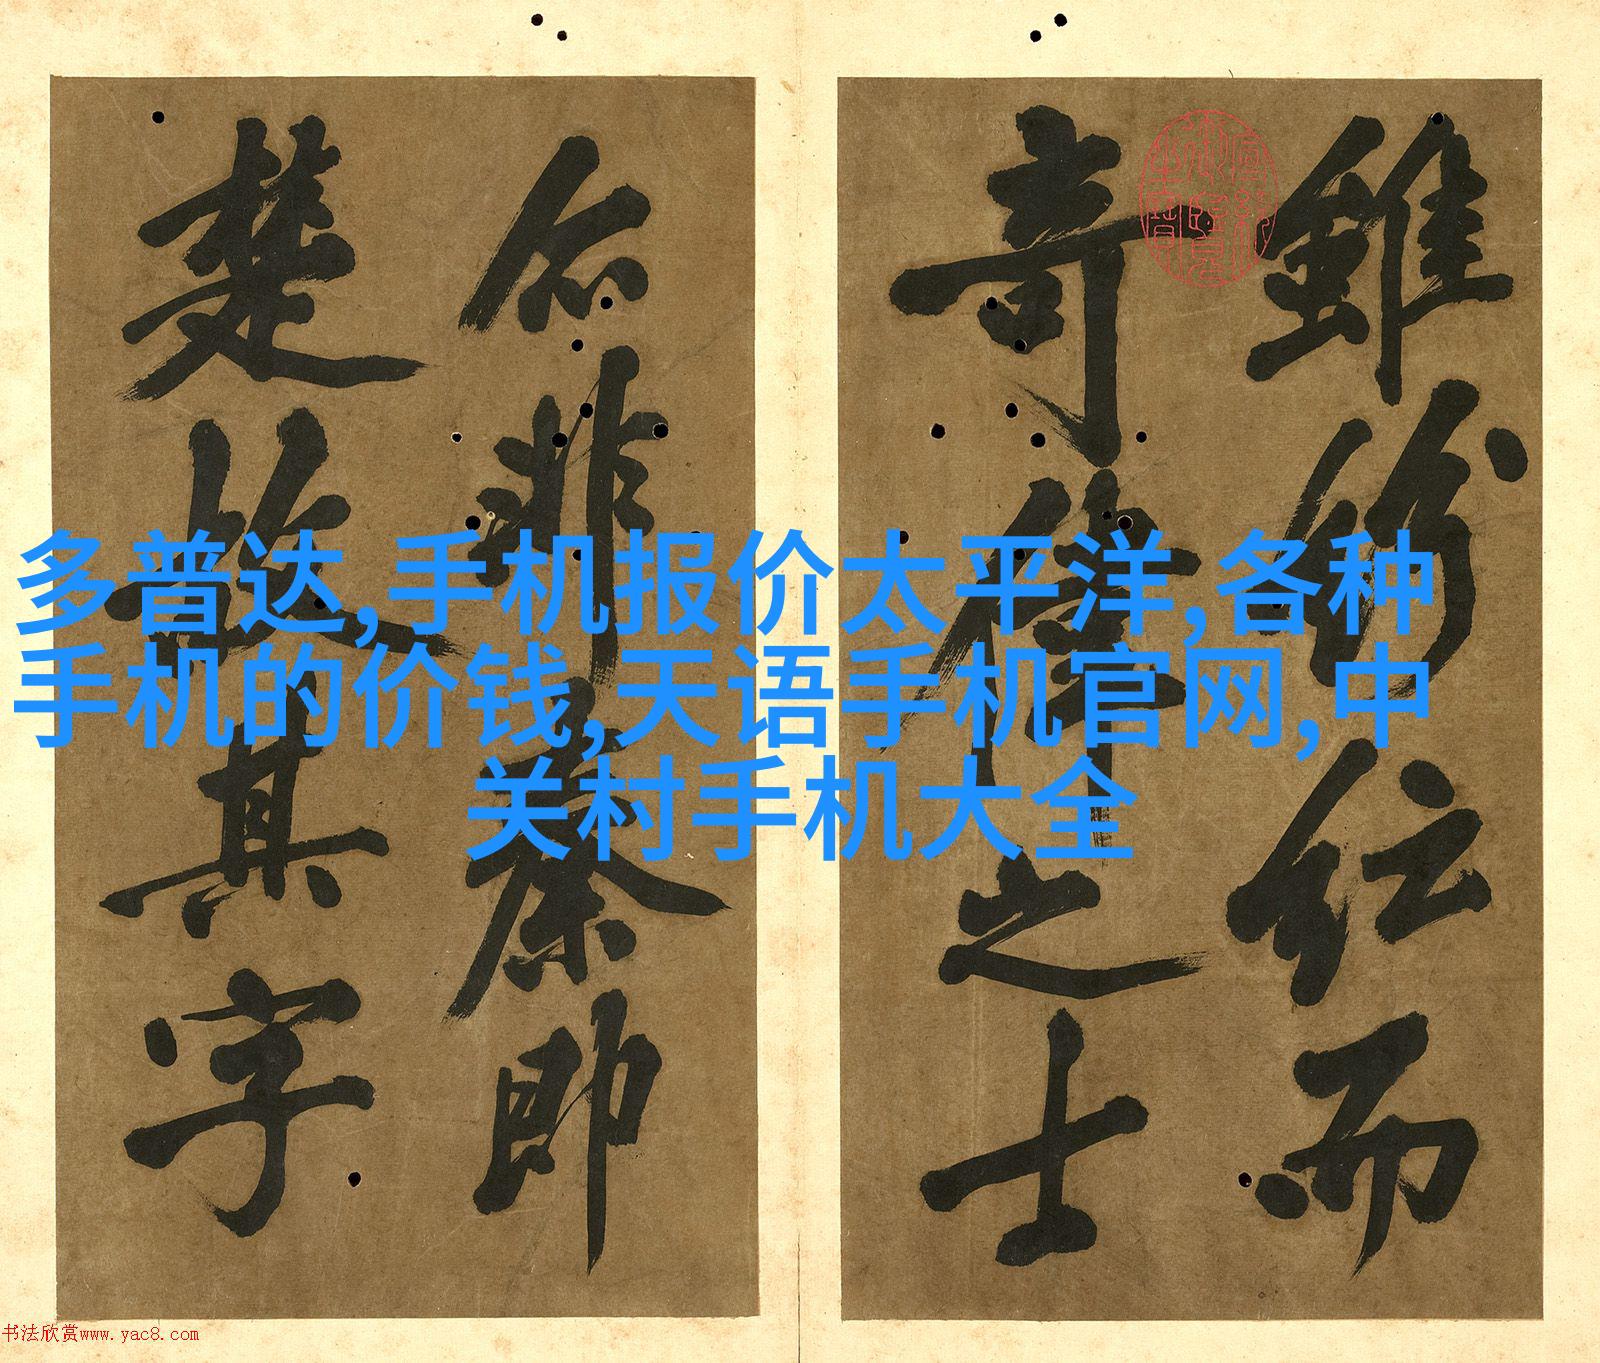 多普达,手机报价太平洋,各种
手机的价钱,天语手机官网,中
关村手机大全
雖紛紜而
奇偉之士
非秦即
楚故其字
书法欣赏www.yac8.com